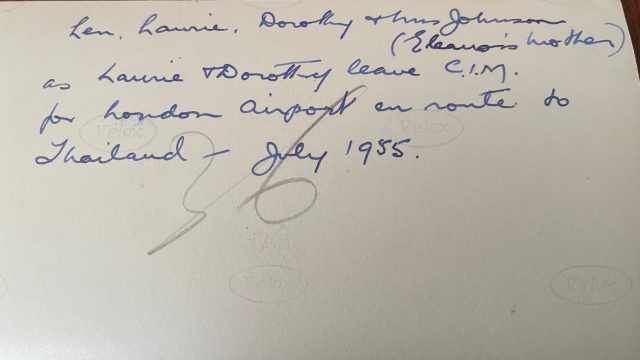 Len, Laurie, Dorothy & Mrs Johnson
(Eleanor's mother)
as Laurie & Dorothy leave C.I.M.
for London Airport en route to
Thailand – July 1955.
36
Velox
Velox
Velox
Velox